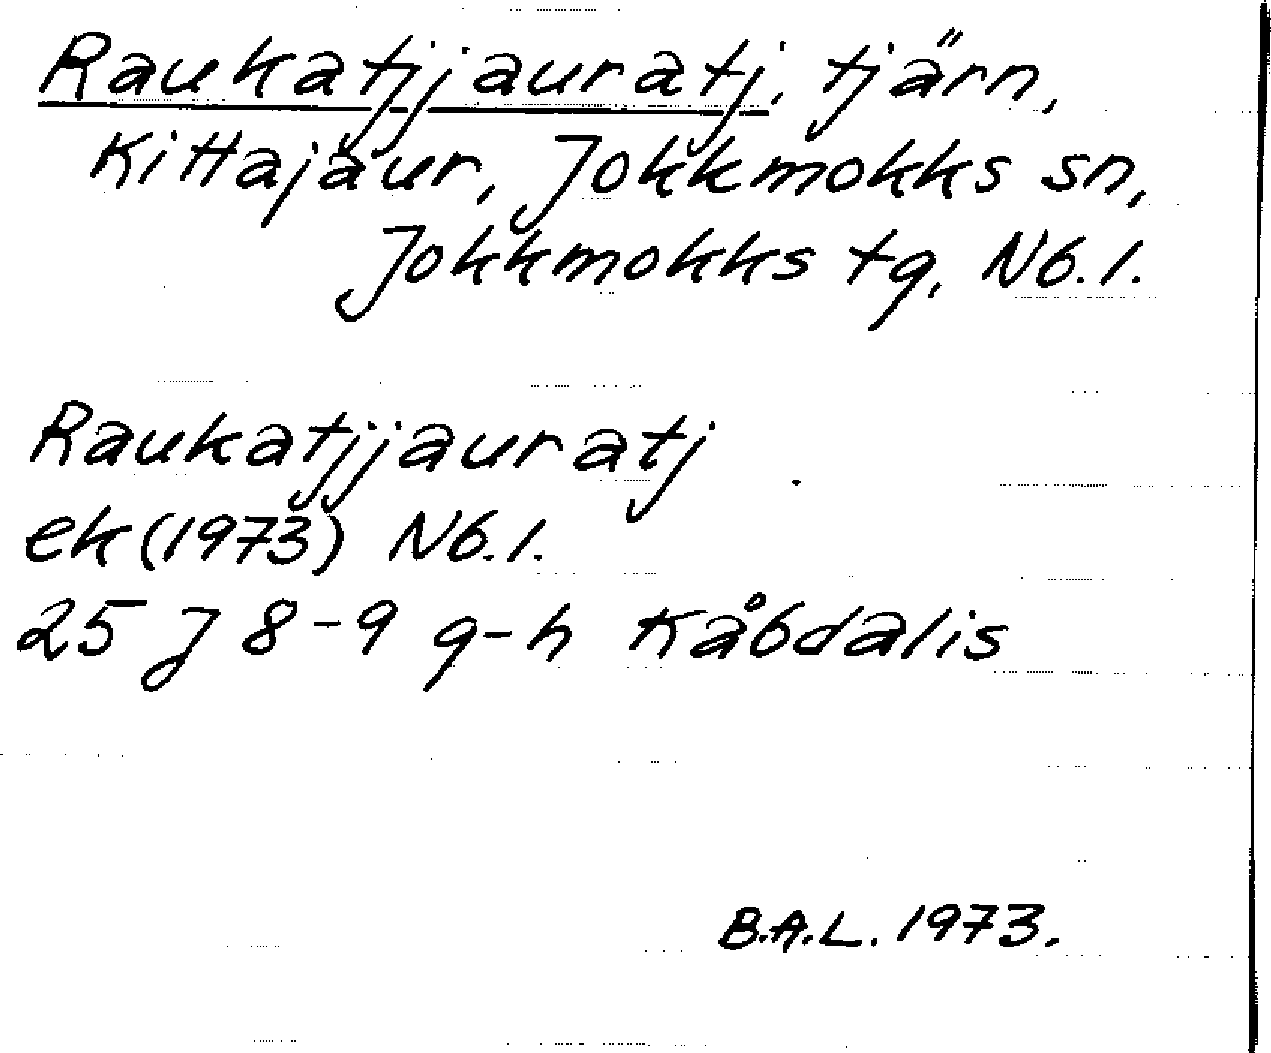 Raukatjjauratj, tjärn,
Kittajaur, Jokkmokks sn,
Jokkmokks tg, Nb.l.
Raukatjjauratj
ek (1973) Nb.l.
25 J 8-9 g-h Kåbdalis
B.A.L. 1973.